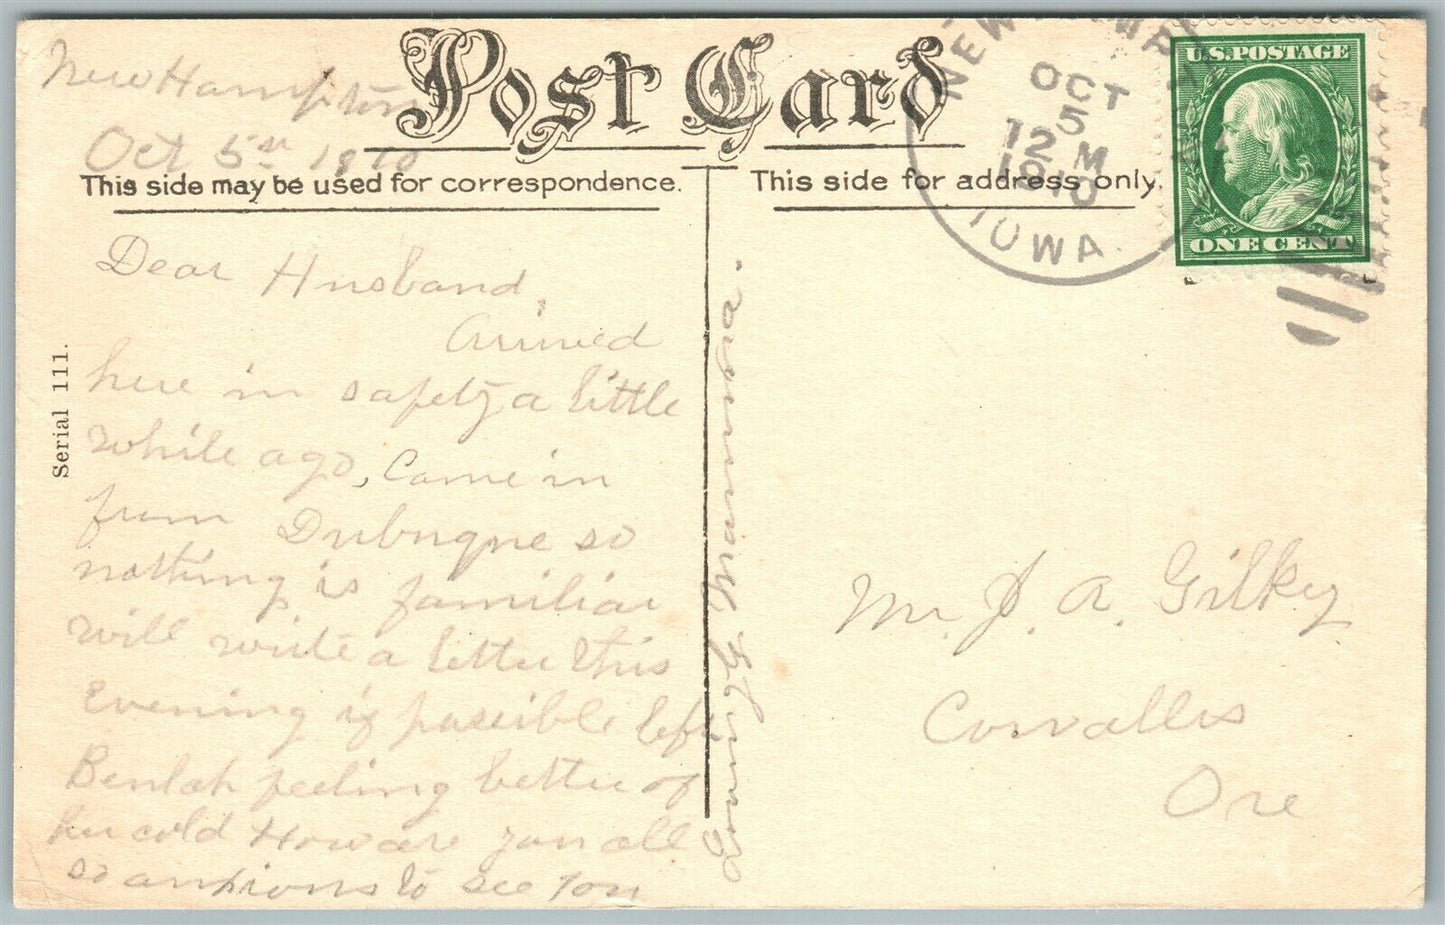 New Hampton
Oct 5th 1910
Post Card
This side may be used for correspondence.
This side for address only.
NEW HAMPTON
OCT
5
12 M
1910
IOWA.
U.S. POSTAGE
ONE CENT
Serial 111.
Dear Husband,
Arrived
here in safety a little
while ago, Came in
from Dubuque so
nothing is familiar
will write a letter this
Evening if possible left
Beulah feeling better of
her cold How are you all
so anxious to see you
Lovingly Mamma.
Mr. J. A. Gilkey
Corvallis
Ore